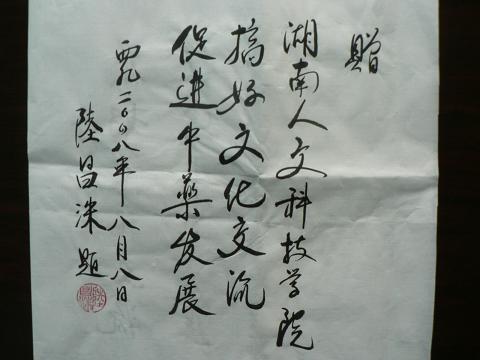 贈
湖南人文科技学院
搞好文化交流
促進中藥发展
西元二〇〇八年八月八日
陸昌洙題